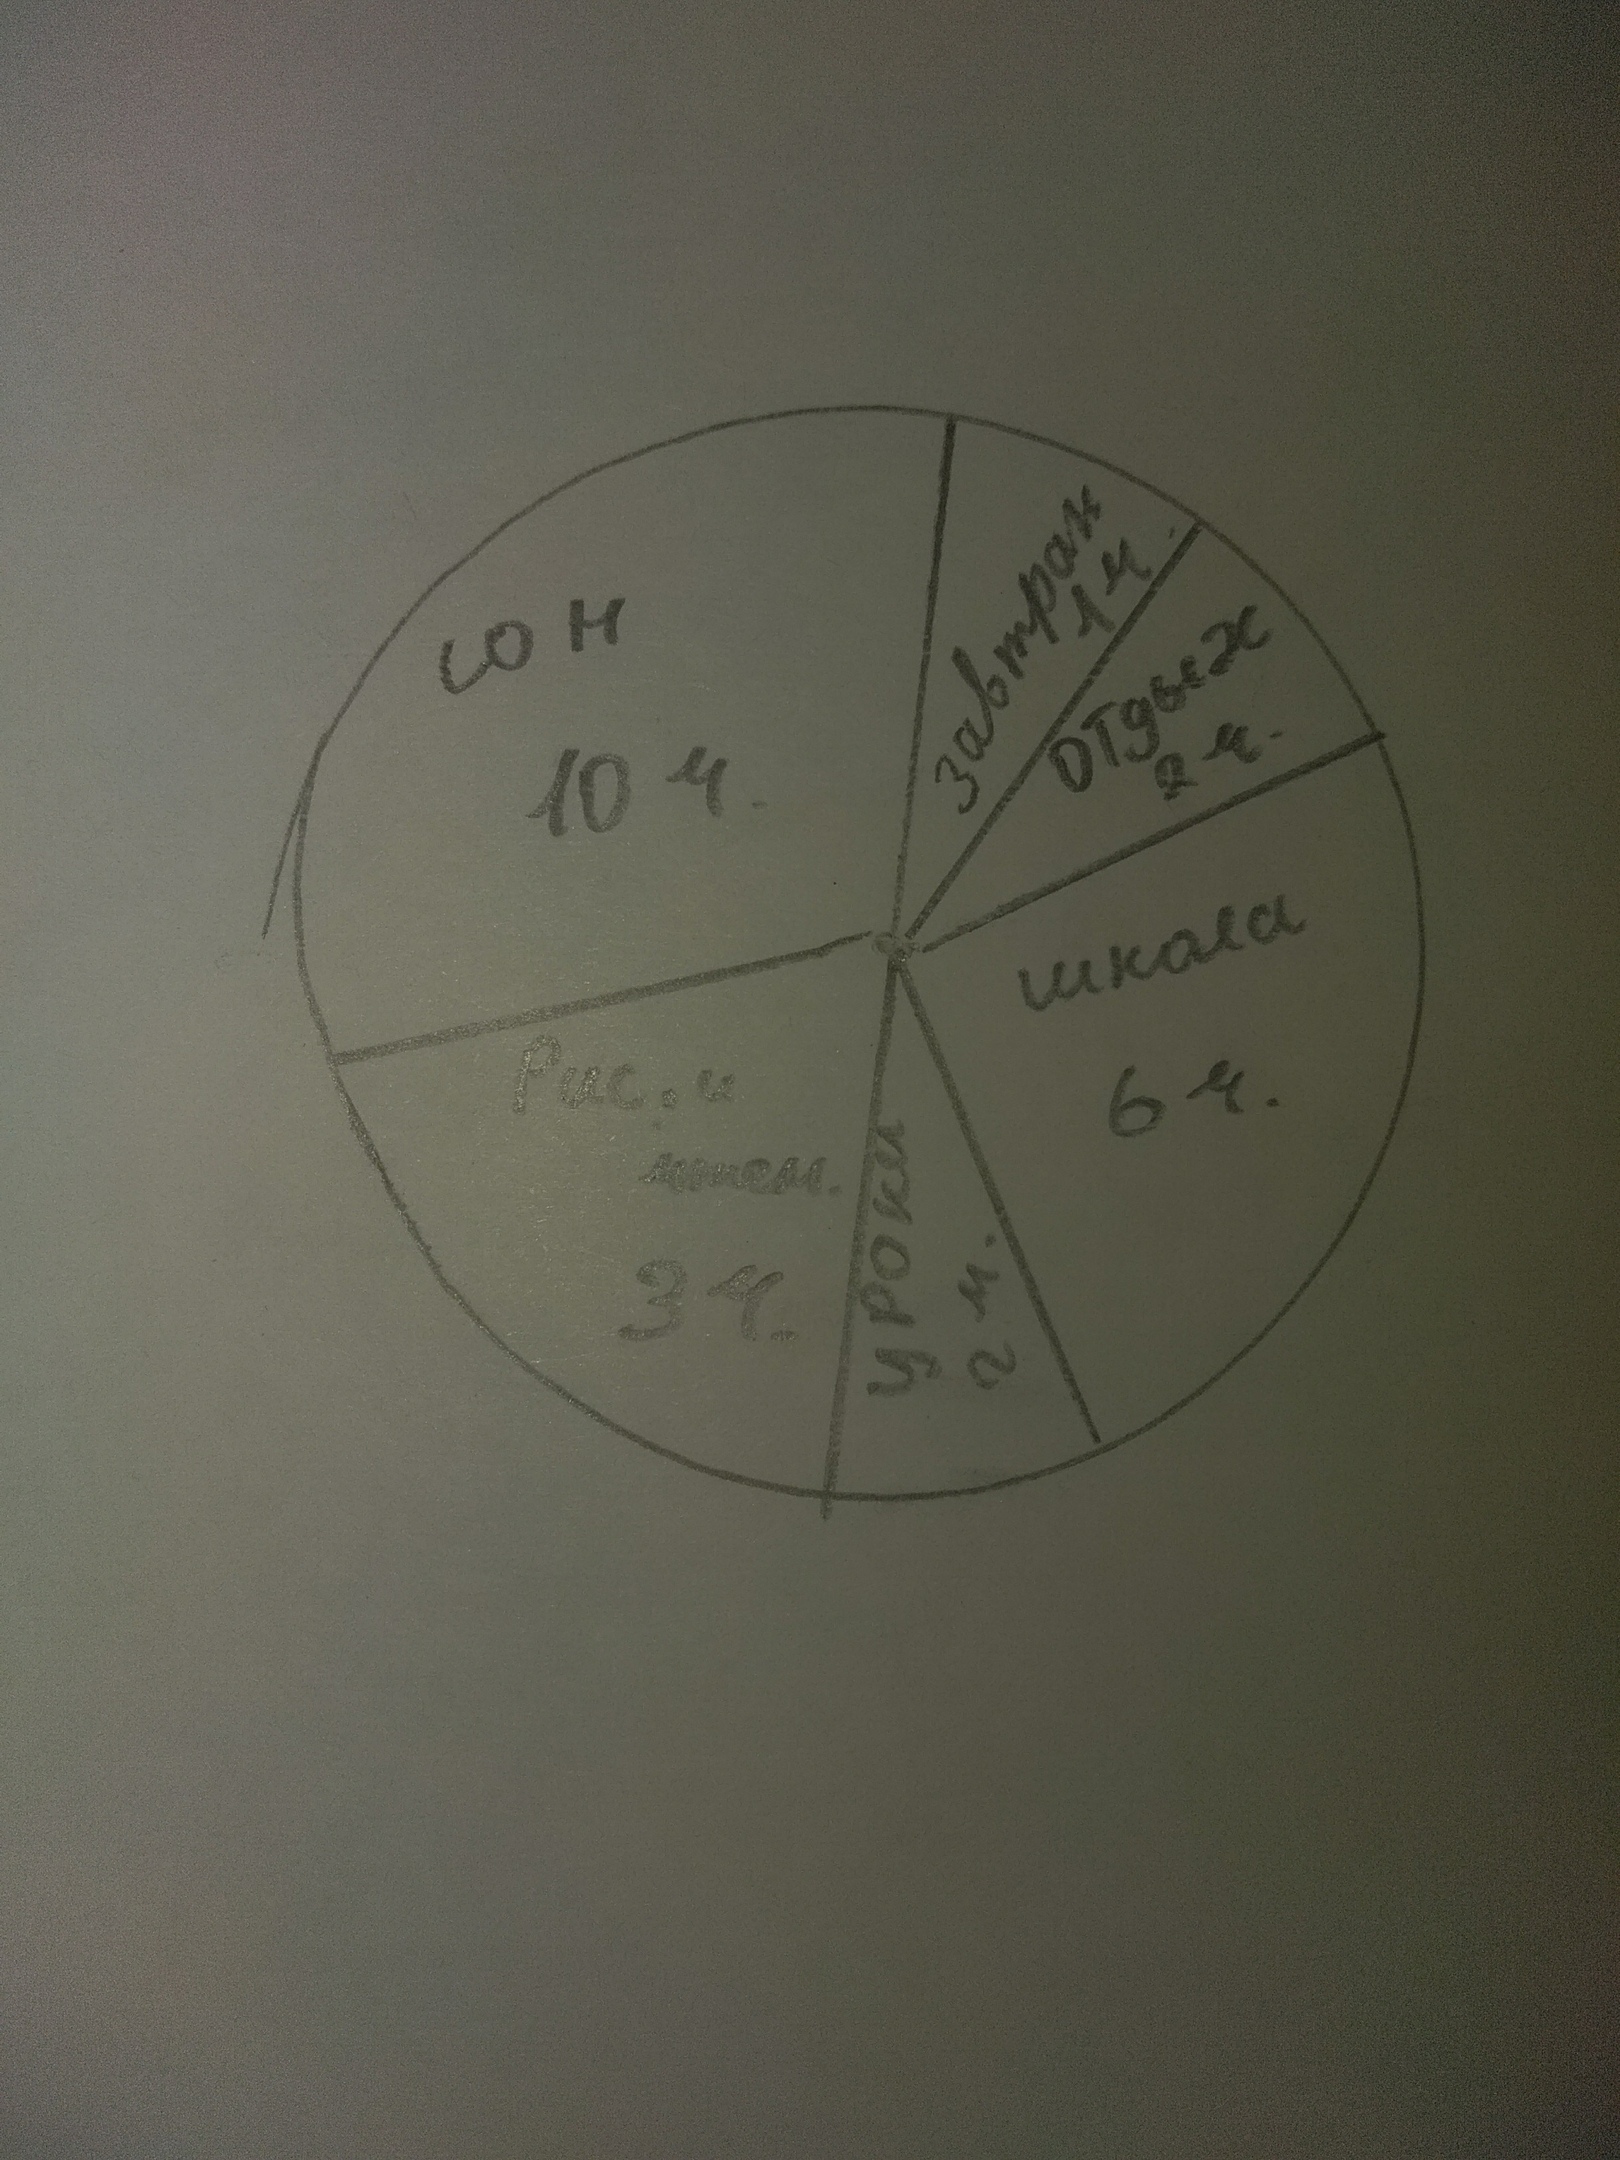 сон
10 ч.
завтрак
1 ч.
отдых
2 ч.
школа
6 ч.
уроки
2 ч.
Рис. и
3 ч.